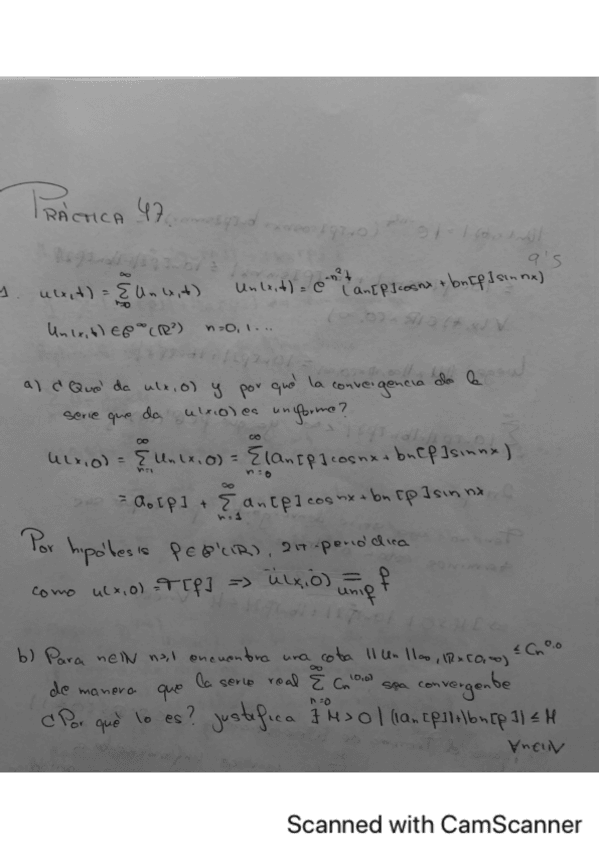 PRÀCTICA 47.
9'5
1. u(x,t) = ∑_{n=0}^{∞} Un(x,t)   Un(x,t) = e^{-n²t} (an[f]cosnx + bn[f]sinnx)
Un(x,t) ∈ C^∞(R²)   n=0,1...
a) ¿Qué da u(x,0) y por qué la convergencia de la
serie que da u(x,0) es uniforme?
u(x,0) = ∑_{n=0}^{∞} Un(x,0) = ∑_{n=0}^{∞} (an[f]cosnx + bn[f]sinnx)
= a0[f] + ∑_{n=1}^{∞} an[f]cosnx + bn[f]sinnx
Por hipótesis f ∈ C¹(R), 2π-periódica
como u(x,0) = T[f] => u(x,0) =_{unif} f
b) Para n∈N n≥1 encuentra una cota ||Un||∞, R×(0,∞) ≤ Cn^{0,0}
de manera que la serie real ∑_{n=0}^{∞} Cn^{(0,0)} sea convergente
¿Por qué lo es? justifica ∃ M>0 | (|an[f]|+|bn[f]|) ≤ M
Scanned with CamScanner